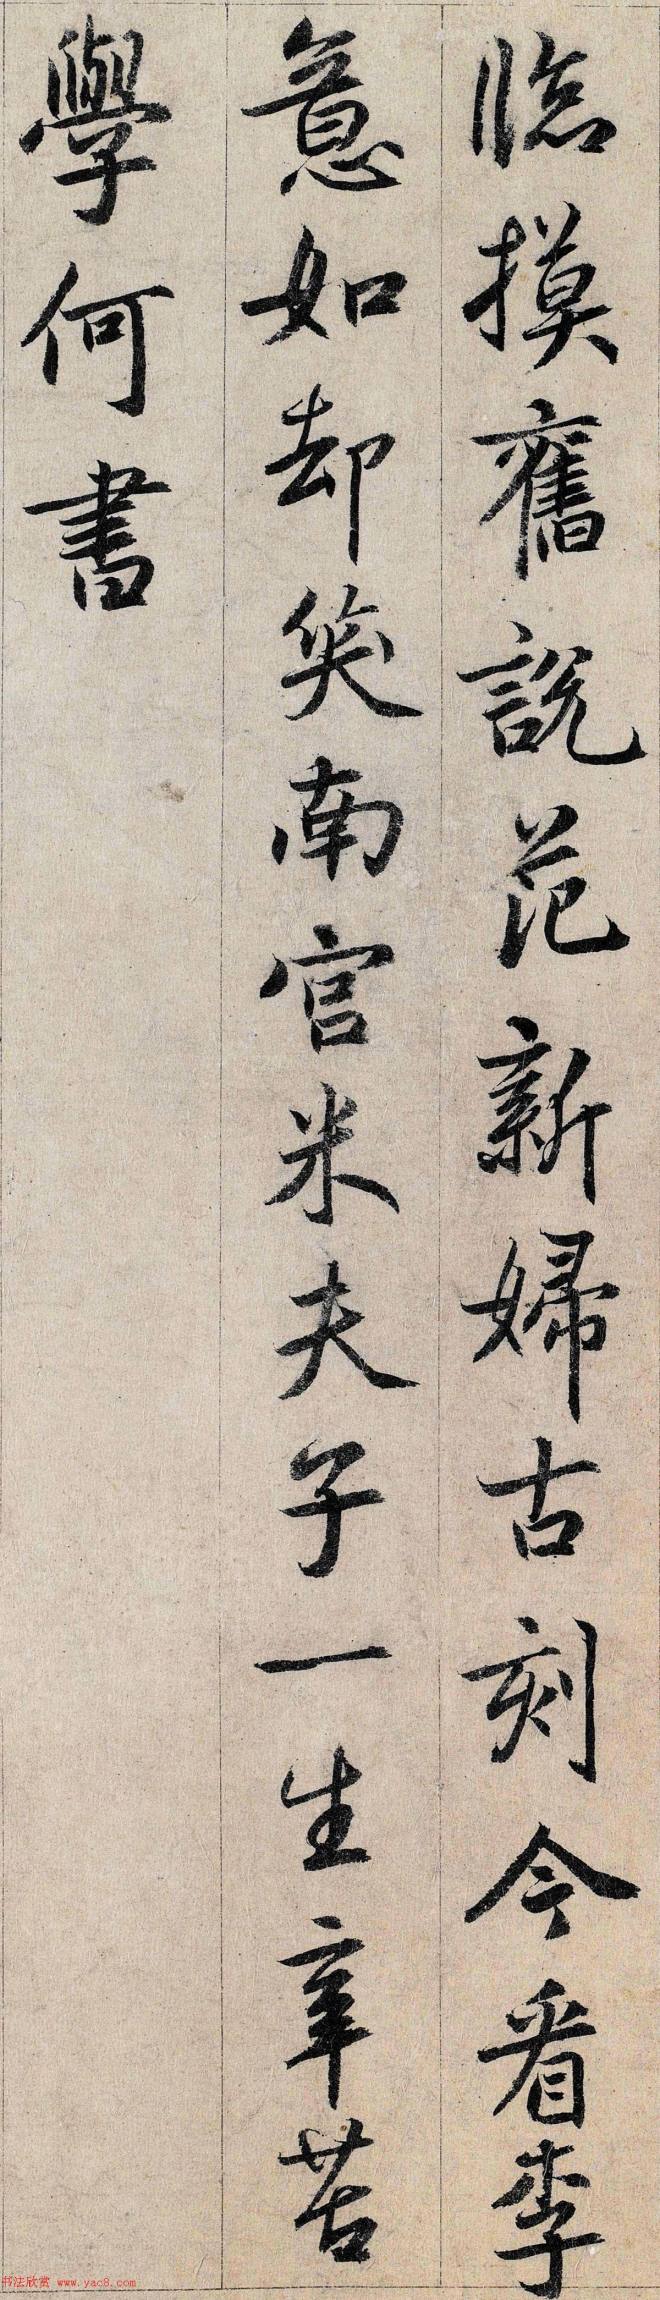 臨摸舊說范新婦古刻今看李
意如却笑南官米夫子一生辛苦
學何書
书法欣赏 www.yac8.com